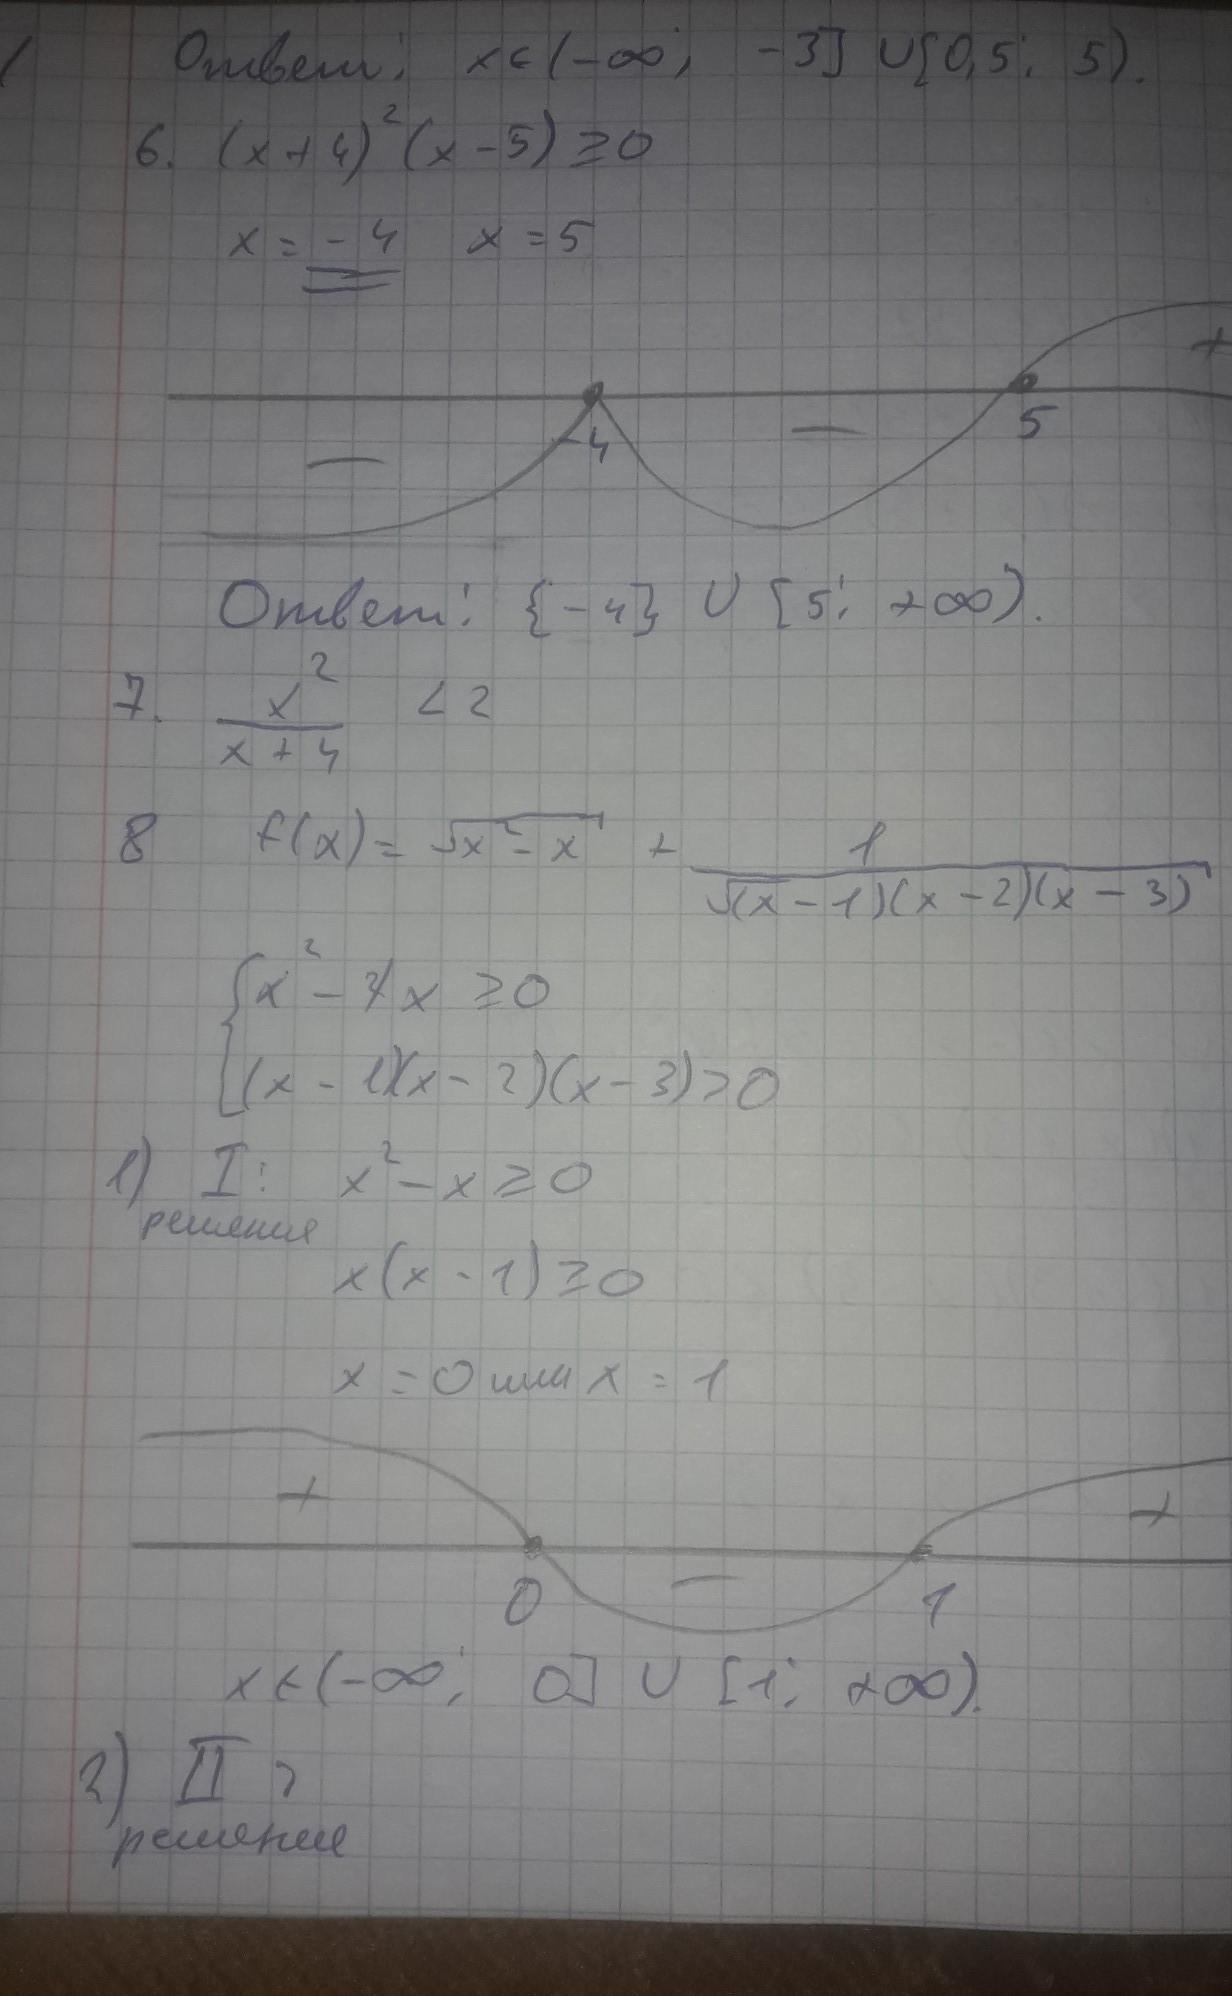 Ответ: x∈(-∞; -3] ∪ [0,5; 5).
6. (x+4)²(x-5)≥0
x = -4 x = 5
- -4 - 5 +
Ответ: {-4} ∪ [5; +∞).
7. x²/(x+4) < 2
8 f(x) = √(x²-x) + 1/√((x-1)(x-2)(x-3))
{ x² - x ≥0
(x-1)(x-2)(x-3)>0
1) I: x²-x≥0
решения
x(x-1)≥0
x = 0 или x = 1
+ 0 - 1 +
x∈(-∞; 0] ∪ [1; +∞).
2) II
решение